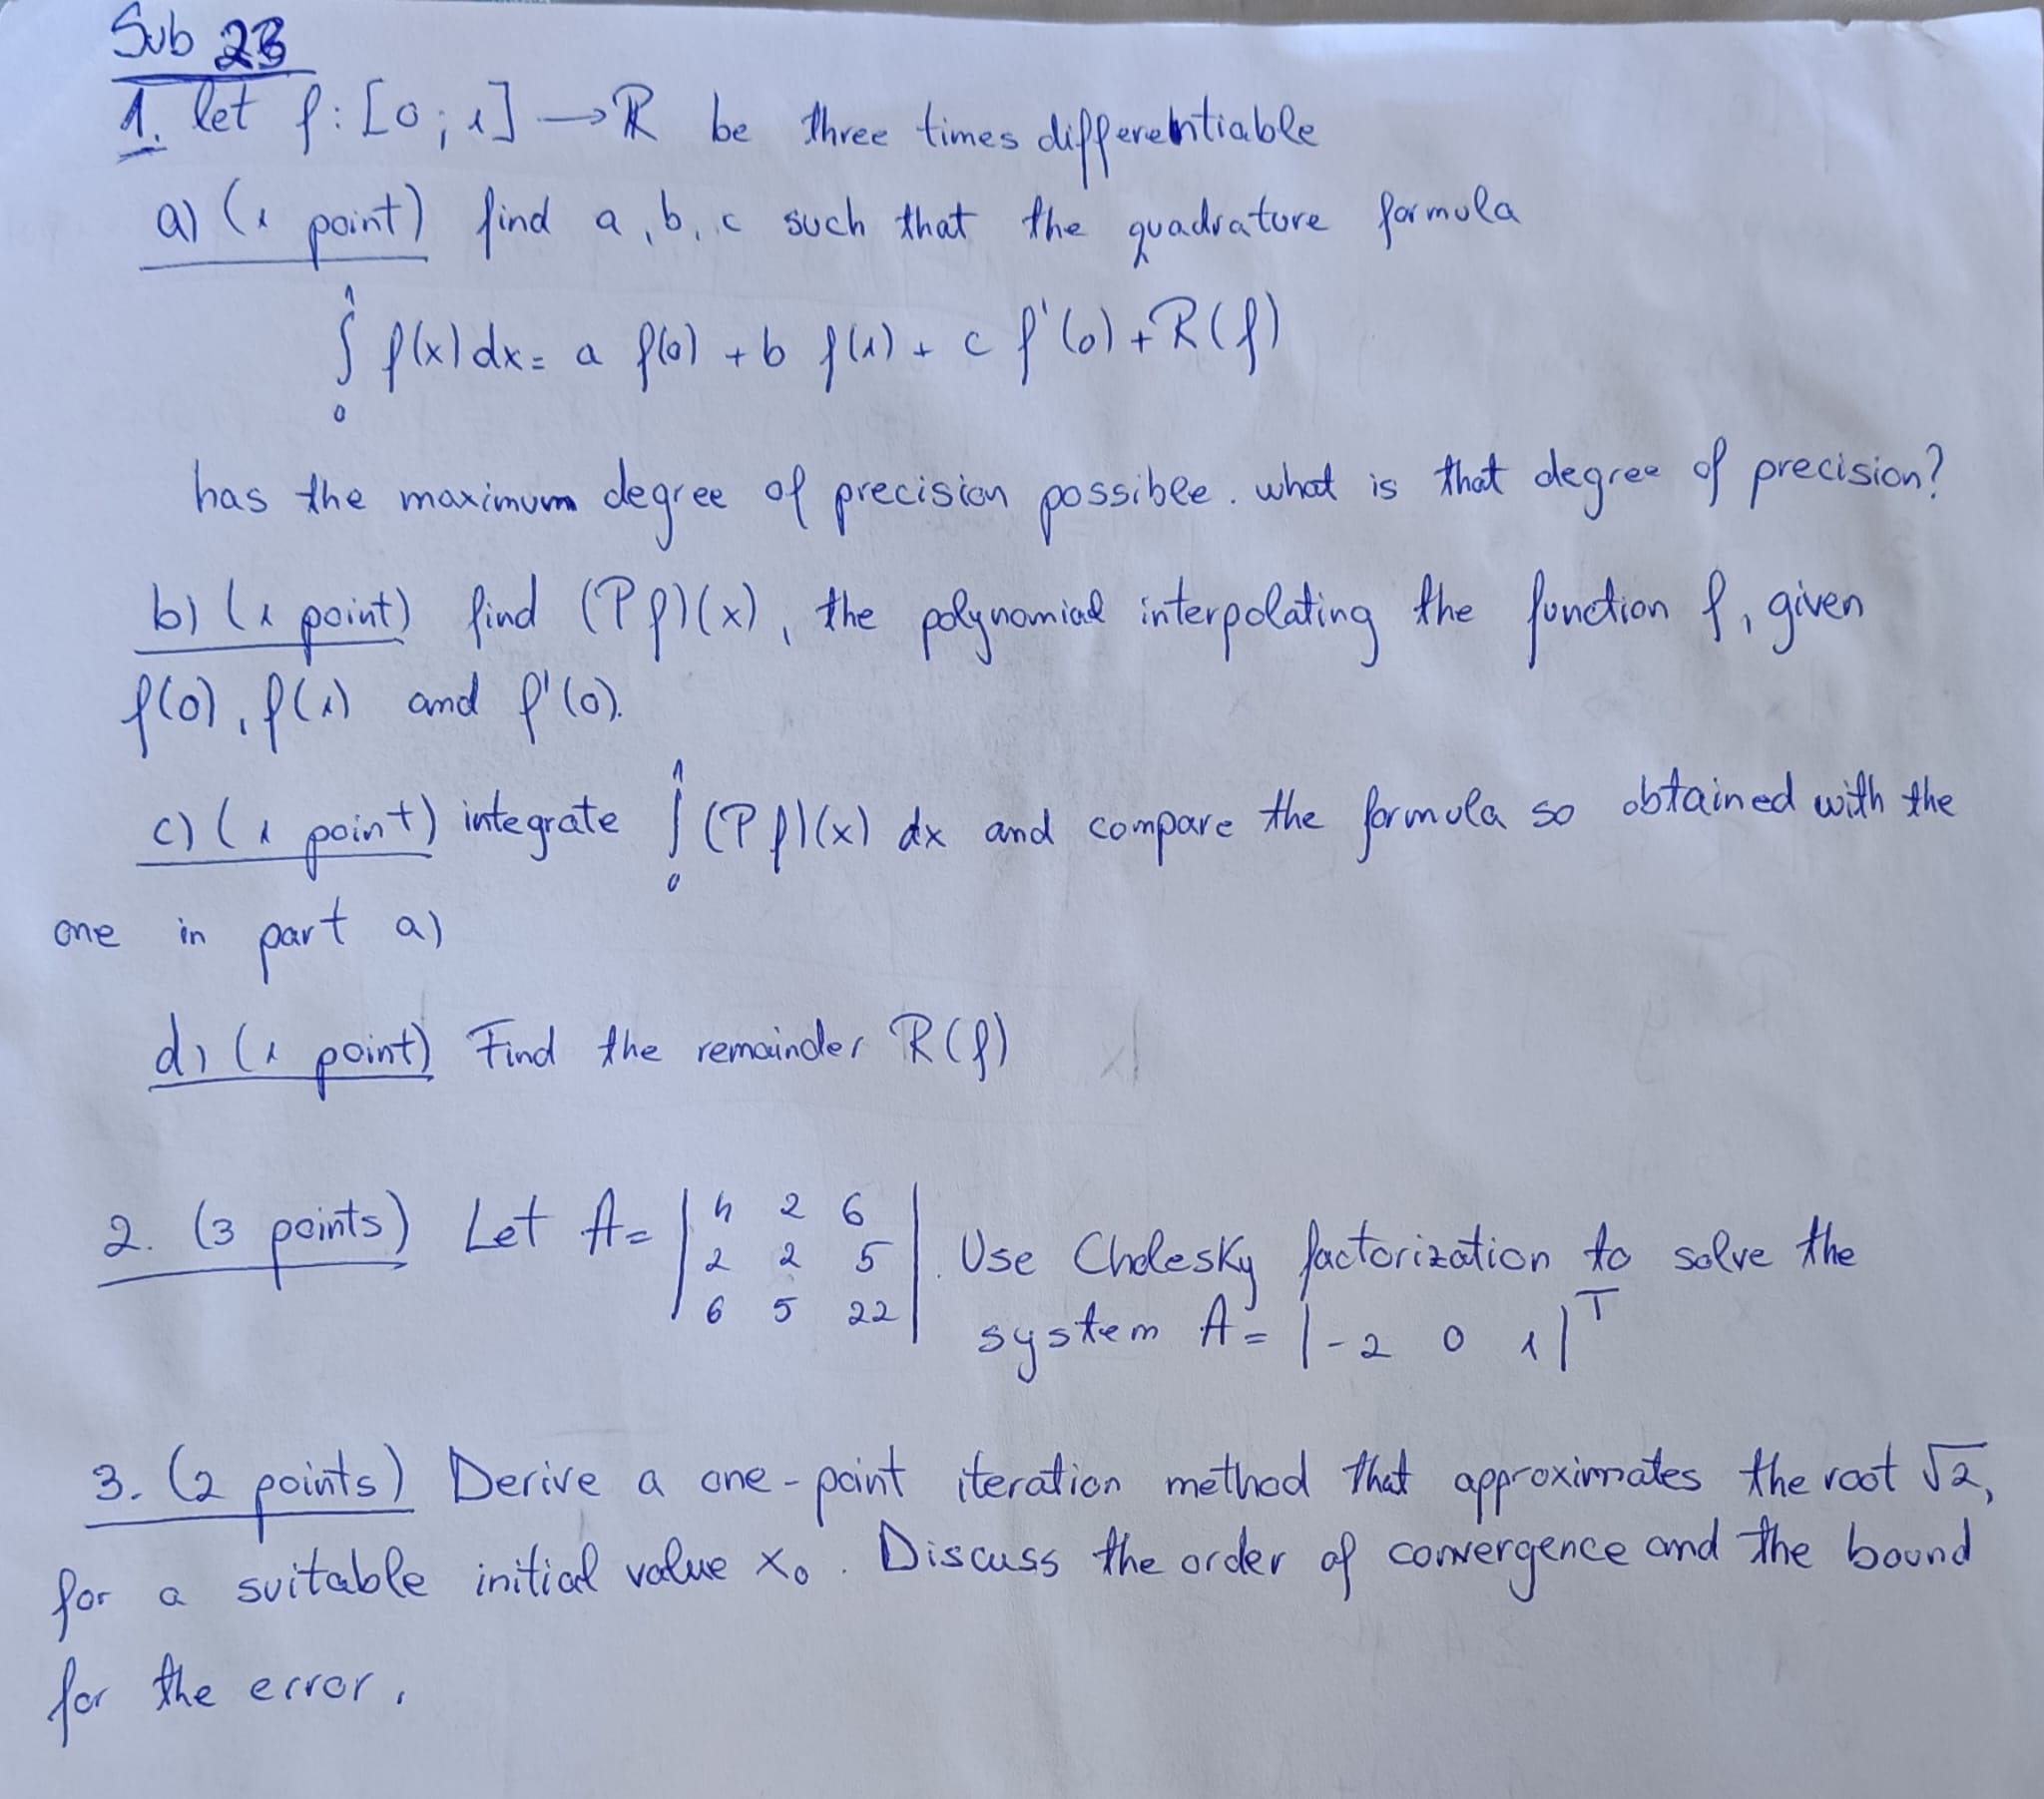 Sub 23
1. let f: [0; 1] → R be three times differentiable
a) (1 point) find a, b, c such that the quadrature formula
∫₀¹ f(x) dx = a f(0) + b f(1) + c f'(0) + R(f)
has the maximum degree of precision possible. what is that degree of precision?
b) (1 point) find (Pf)(x), the polynomial interpolating the function f, given
f(0), f(1) and f'(0).
c) (1 point) integrate ∫₀¹ (Pf)(x) dx and compare the formula so obtained with the
one in part a)
d) (1 point) Find the remainder R(f)
2. (3 points) Let A = | 4 2 6 |
| 2 2 5 | . Use Cholesky factorization to solve the
| 6 5 22 | system A = |-2 0 1|ᵀ
3. (2 points) Derive a one-point iteration method that approximates the root √2,
for a suitable initial value x₀. Discuss the order of convergence and the bound
for the error.